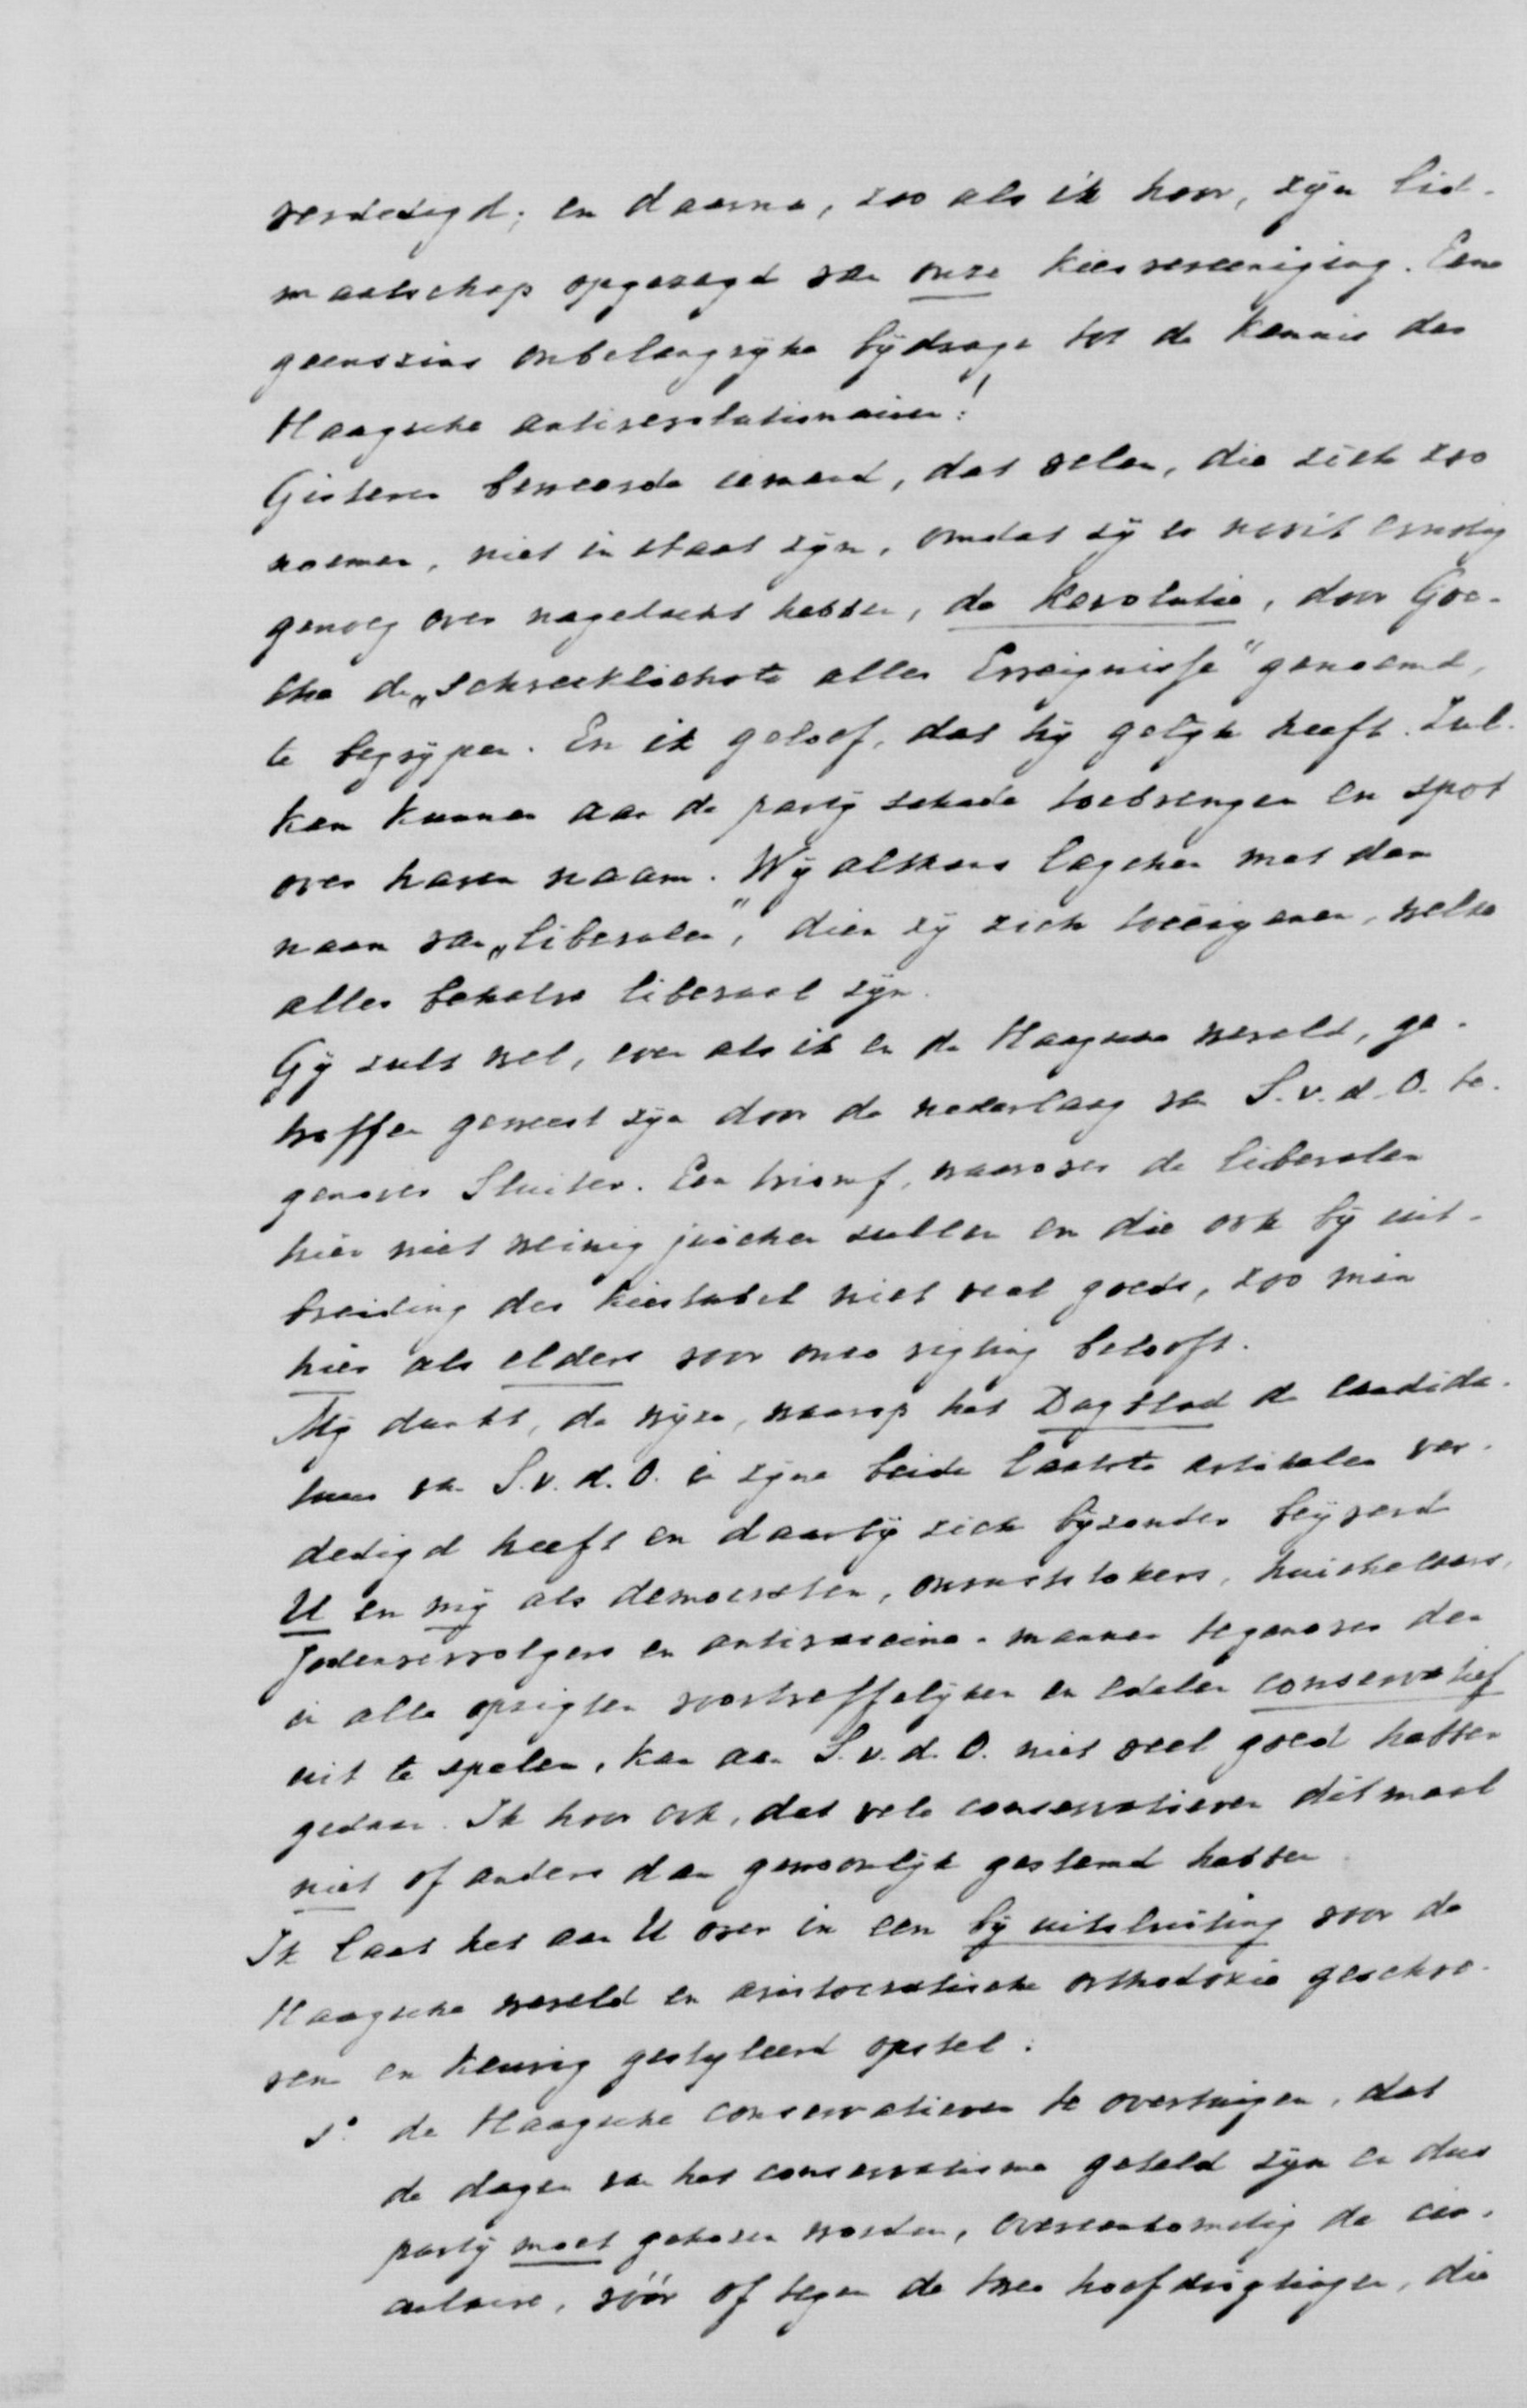 verdedigd; en daarna, zoo als ik hoor, zijn lid-
maatschap opgezegd van onze kiesvereeniging. Eene
geenszins onbelangrijke bijdrage tot de kennis der
Haagsche antirevolutionairen!
Gisteren beweerde iemand, dat velen, die zich zoo
noemen, niet in staat zijn, omdat zij er nooit ernstig
genoeg over nagedacht hebben, de Revolutie, door Goe-
the de „schrecklichste aller Ereignisse" genoemd,
te begrijpen. En ik geloof, dat hij gelijk heeft. Zul-
ken kunnen aan de partij schade toebrengen en spot
over haren naam. Wij althans lagchen met den
naam van „liberalen", dien zij zich toeëigenen, welke
alles behalve liberaal zijn.
Gij zult wel, even als ik en de Haagsche wereld, ge-
troffen geweest zijn door de nederlaag van S. v. d. O. te-
genover Sluiter. Een triomf, waarover de liberalen
hier niet weinig juichen zullen en die ook bij uit-
breiding der kiestabel niet veel goeds, zoo min
hier als elders voor onze rigting belooft.
Mij dunkt, de wijze, waarop het Dagblad de candida-
tuur van S. v. d. O. in zijne beide laatste artikelen ver-
dedigd heeft en daarbij zich bijzonder beijverd
U en mij als democraten, onruststokers, huichelaars,
Jodenvervolgers en antivaccine-mannen tegenover den
in alle opzigten voortreffelijken en edelen conservatief
uit te spelen, kan aan S. v. d. O. niet veel goed hebben
gedaan. Ik hoor ook, dat vele conservatieven ditmaal
niet of anders dan gewoonlijk gestemd hebben.
Ik laat het aan U over in een bij uitsluiting voor de
Haagsche wereld en aristocratische orthodoxie geschre-
ven en keurig gestyleerd opstel:
1° de Haagsche conservatieven te overtuigen, dat
de dagen van het conservatisme geteld zijn en dus
partij moet gekozen worden, overeenkomstig de
vóór of tegen de twee hoofdrigtingen, die